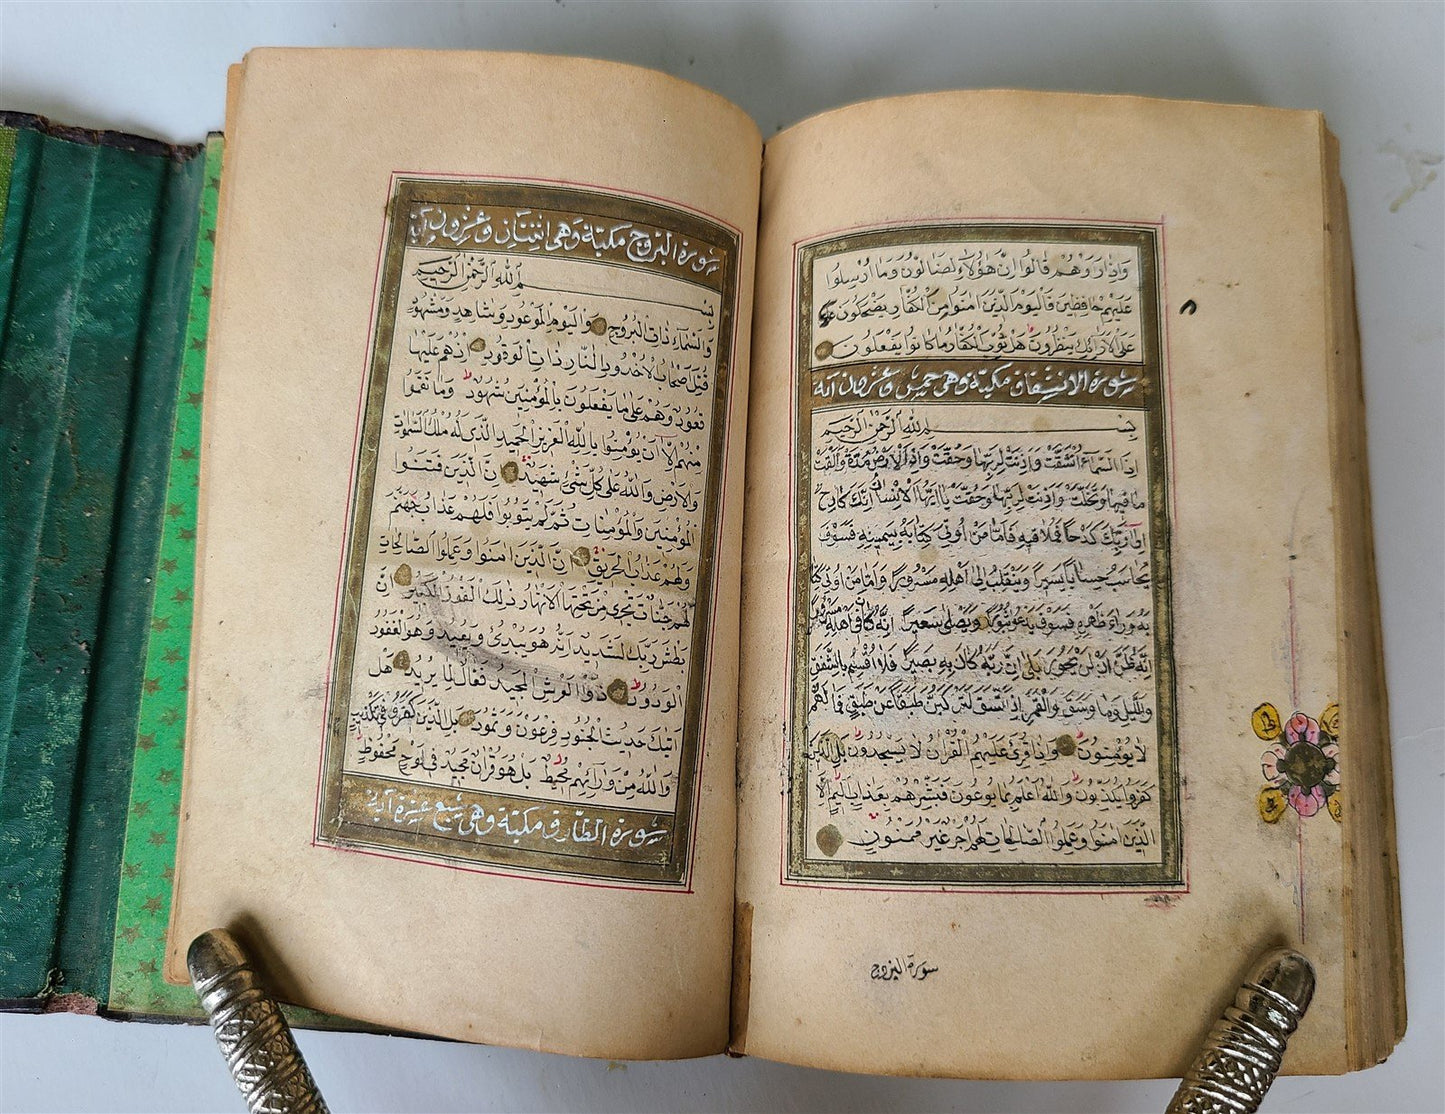 واذا راوهم قالوا ان هؤلاء لضالون وما ارسلوا
عليهم حافظين فاليوم الذين امنوا من الكفار يضحكون
على الارائك ينظرون هل ثوب الكفار ما كانوا يفعلون
سورة الانشقاق مكية وهي خمس وعشرون اية
بسم الله الرحمن الرحيم
اذا السماء انشقت واذنت لربها وحقت واذا الارض مدت والقت
ما فيها وتخلت واذنت لربها وحقت يا ايها الانسان انك كادح
الى ربك كدحا فملاقيه فاما من اوتي كتابه بيمينه فسوف
يحاسب حسابا يسيرا وينقلب الى اهله مسرورا واما من اوتي كتا
به وراء ظهره فسوف يدعو ثبورا ويصلى سعيرا انه كان في اهله مسرورا
انه ظن ان لن يحور بلى ان ربه كان به بصيرا فلا اقسم بالشفق
والليل وما وسق والقمر اذا اتسق لتركبن طبقا عن طبق فما لهم
لا يؤمنون واذا قرئ عليهم القران لا يسجدون بل الذين
كفروا يكذبون والله اعلم بما يوعون فبشرهم بعذاب اليم الا
الذين امنوا وعملوا الصالحات لهم اجر غير ممنون
سورة البروج
سورة البروج مكية وهي اثنتان وعشرون اية
بسم الله الرحمن الرحيم
والسماء ذات البروج واليوم الموعود وشاهد ومشهود
قتل اصحاب الاخدود النار ذات الوقود اذ هم عليها
قعود وهم على ما يفعلون بالمؤمنين شهود وما نقموا
منهم الا ان يؤمنوا بالله العزيز الحميد الذي له ملك السموات
والارض والله على كل شئ شهيد ان الذين فتنوا
المؤمنين والمؤمنات ثم لم يتوبوا فلهم عذاب جهنم
ولهم عذاب الحريق ان الذين امنوا وعملوا الصالحات
لهم جنات تجري من تحتها الانهار ذلك الفوز الكبير ان
بطش ربك لشديد انه هو يبدئ ويعيد وهو الغفور
الودود ذو العرش المجيد فعال لما يريد هل
اتيك حديث الجنود فرعون وثمود بل الذين كفروا في تكذيب
والله من ورائهم محيط بل هو قران مجيد في لوح محفوظ
سورة الطارق مكية وهي سبع عشرة اية